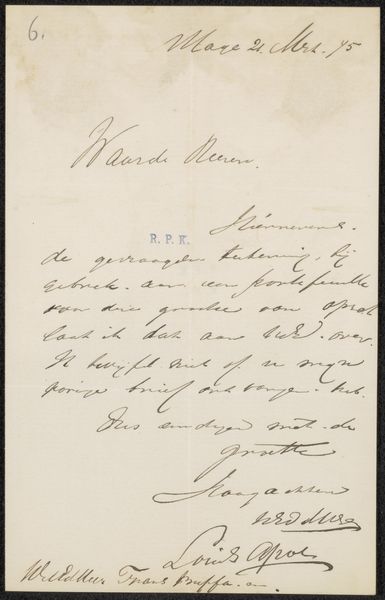 6.
Hage 21 Mrt. 95
Waarde Heeren.
Hiernevens.
R. P. K.
de gevraagden teekening, bij
gebrek. aan een portefeuille
van die grootte van
laat ik dat aan over.
Ik twijfel niet of u mijn
vorige brief ontvangen heb.
eindigen met de
groette
Hoogachten
UEd
Louis Apol
Frans Buffa